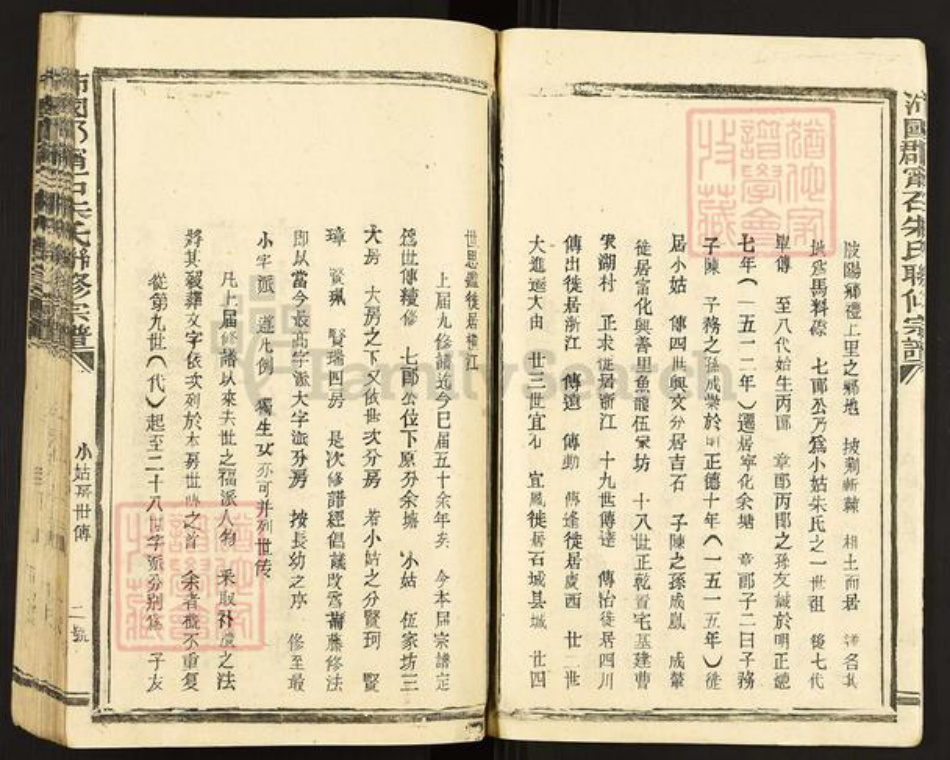 沛國郡甯石朱氏聯修宗譜
坡陽鄉禮上里之鄉地 披荆斬棘 相土而居 名其
地爲馬料磜 七郎公乃爲小姑朱氏之一世祖 後七代
單傳 至八代始生丙郎 章郎丙郎之孫友誠於明正德
七年(一五一二年)遷居寧化余塘 章郎子二曰子務
子陳 子務之孫成業於明正德十年(一五一五年)徙
居小姑 傳四世與文分居吉石 子陳之孫成胤 成肇
徙居富化興善里魚龍伍家坊 十八世正乾置宅基建曹
家湖村 正求徙居浙江 十九世傳達 傳治徙居四川
傳出徙居浙江 傳遠 傳勳 傳逢徙居廣西 廿二世
大進遷大由 廿三世宜石 宜鳳徙居石城县城 廿四
世思鑑徙居樟江
上届九修譜迄今已届五十余年矣 今本届宗譜定
爲世傳續修 七郎公位下原分余塘 小姑 伍家坊三
大房 大房之下又依世次分房 若小姑之分賢珂 賢
璋 賢珮 賢瑞四房 是次修譜經倡議改爲葡藤修法
即以當今最高字派大字派分房 按長幼之序 修至最
小字派 遵凡例 獨生女亦可并列世传
凡上届修譜以來去世之福派人物 采取补遺之法
將其 文字依次列於本房世傳之首 余者概不重复
從第九世(代)起至二十八 字派分別修 子友
小姑房世傳
二號
沛國郡甯石朱氏聯修宗譜
譜學會
收藏
FamilySearch